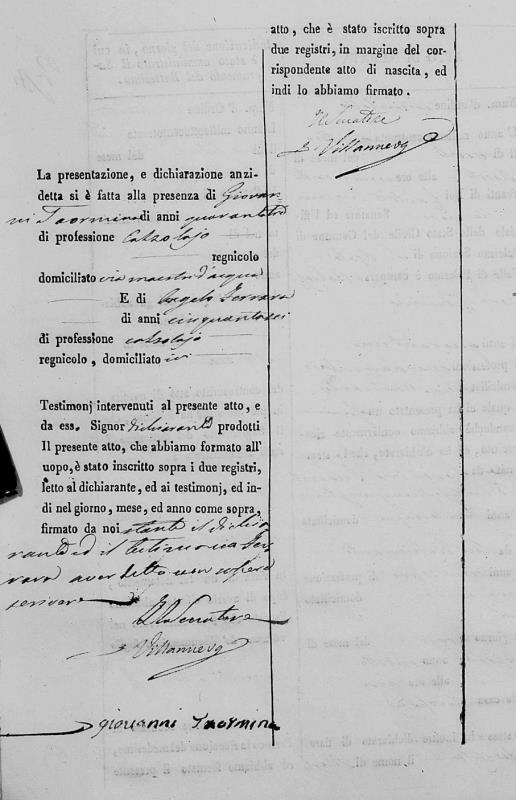 La presentazione, e dichiarazione anzi-
detta si è fatta alla presenza di Giovan
ni Taormina di anni quarantatre
di professione Calzolajo
regnicolo
domiciliato via maestri d'acqua
E di Angelo Ferrara
di anni cinquantasei
di professione calzolajo
regnicolo, domiciliato ivi
Testimonj intervenuti al presente atto, e
da ess. Signor dichiarante prodotti
Il presente atto, che abbiamo formato all'
uopo, è stato inscritto sopra i due registri,
letto al dichiarante, ed ai testimonj, ed in-
di nel giorno, mese, ed anno come sopra,
firmato da noi stante il dichia
rante ed il testimonio Fer
rara aver detto non sapere
scrivere
Il Senatore
Villanueva
giovanni Taormina
atto, che è stato iscritto sopra
due registri, in margine del cor-
rispondente atto di nascita, ed
indi lo abbiamo firmato.
Il Senatore
Villanueva